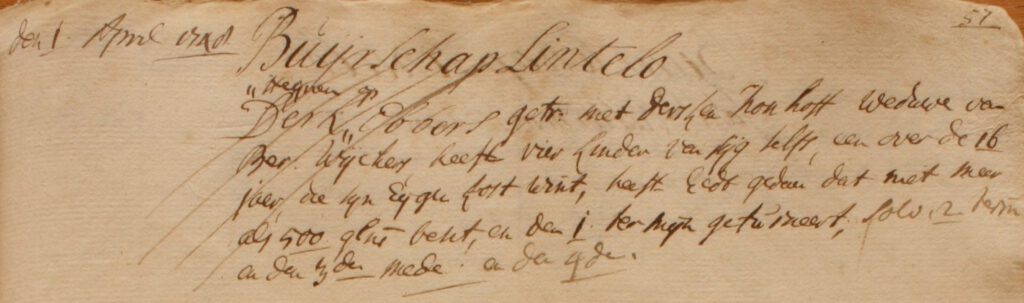 57
den 1 April 1748
Buÿrschap Lintelo
Hegman op
Derk Ebbers getr: met Dersken Konhoff weduwe van
Ber: Wÿchers, heeft vier kinder van sig selfs, een over de 16
jaer, die syn Eÿgen kost wint, heeft Eedt gedaen dat niet meer
als 500 gls besit, en den 1 termyn getúrneert, solv: 2 termin
en den 3den mede en den 4de.